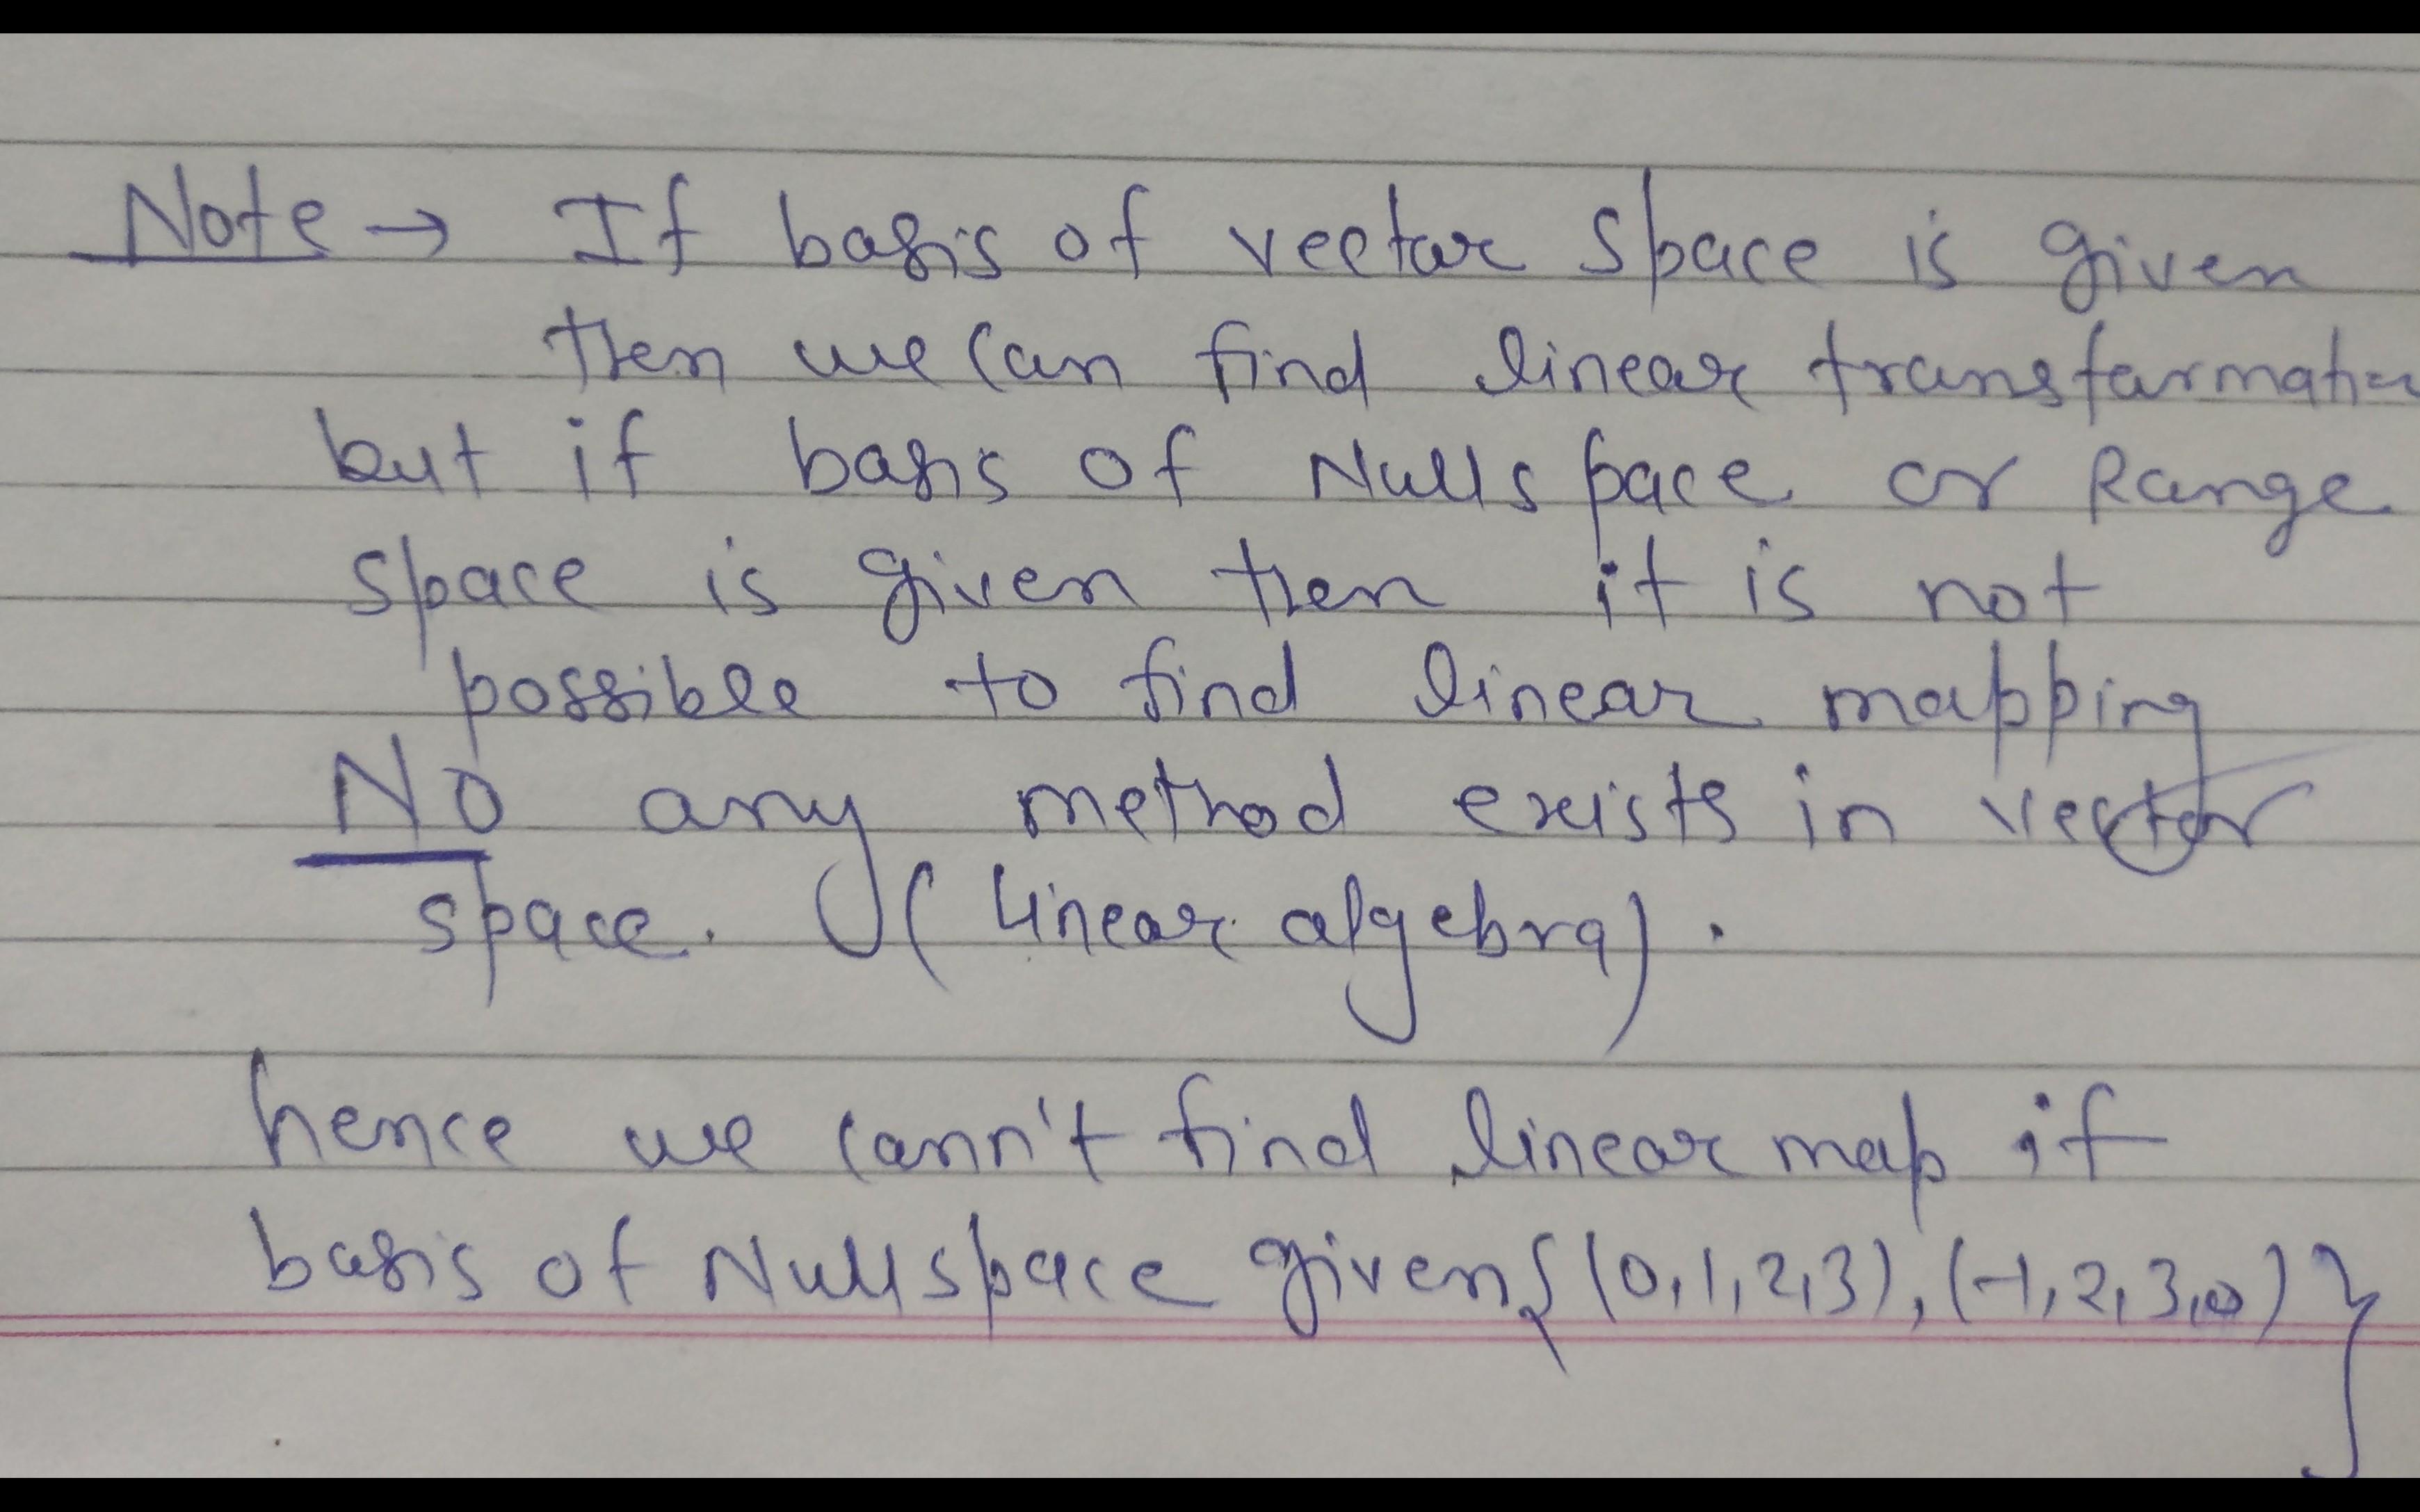 Note → If basis of vector space is given
then we can find linear transformation
but if basis of Null space or Range
space is given then it is not
possible to find linear mapping
No any method exists in vector
space. (Linear algebra).
hence we cann't find linear map if
basis of Nullspace given {(0,1,2,3), (-1,2,3,0)}